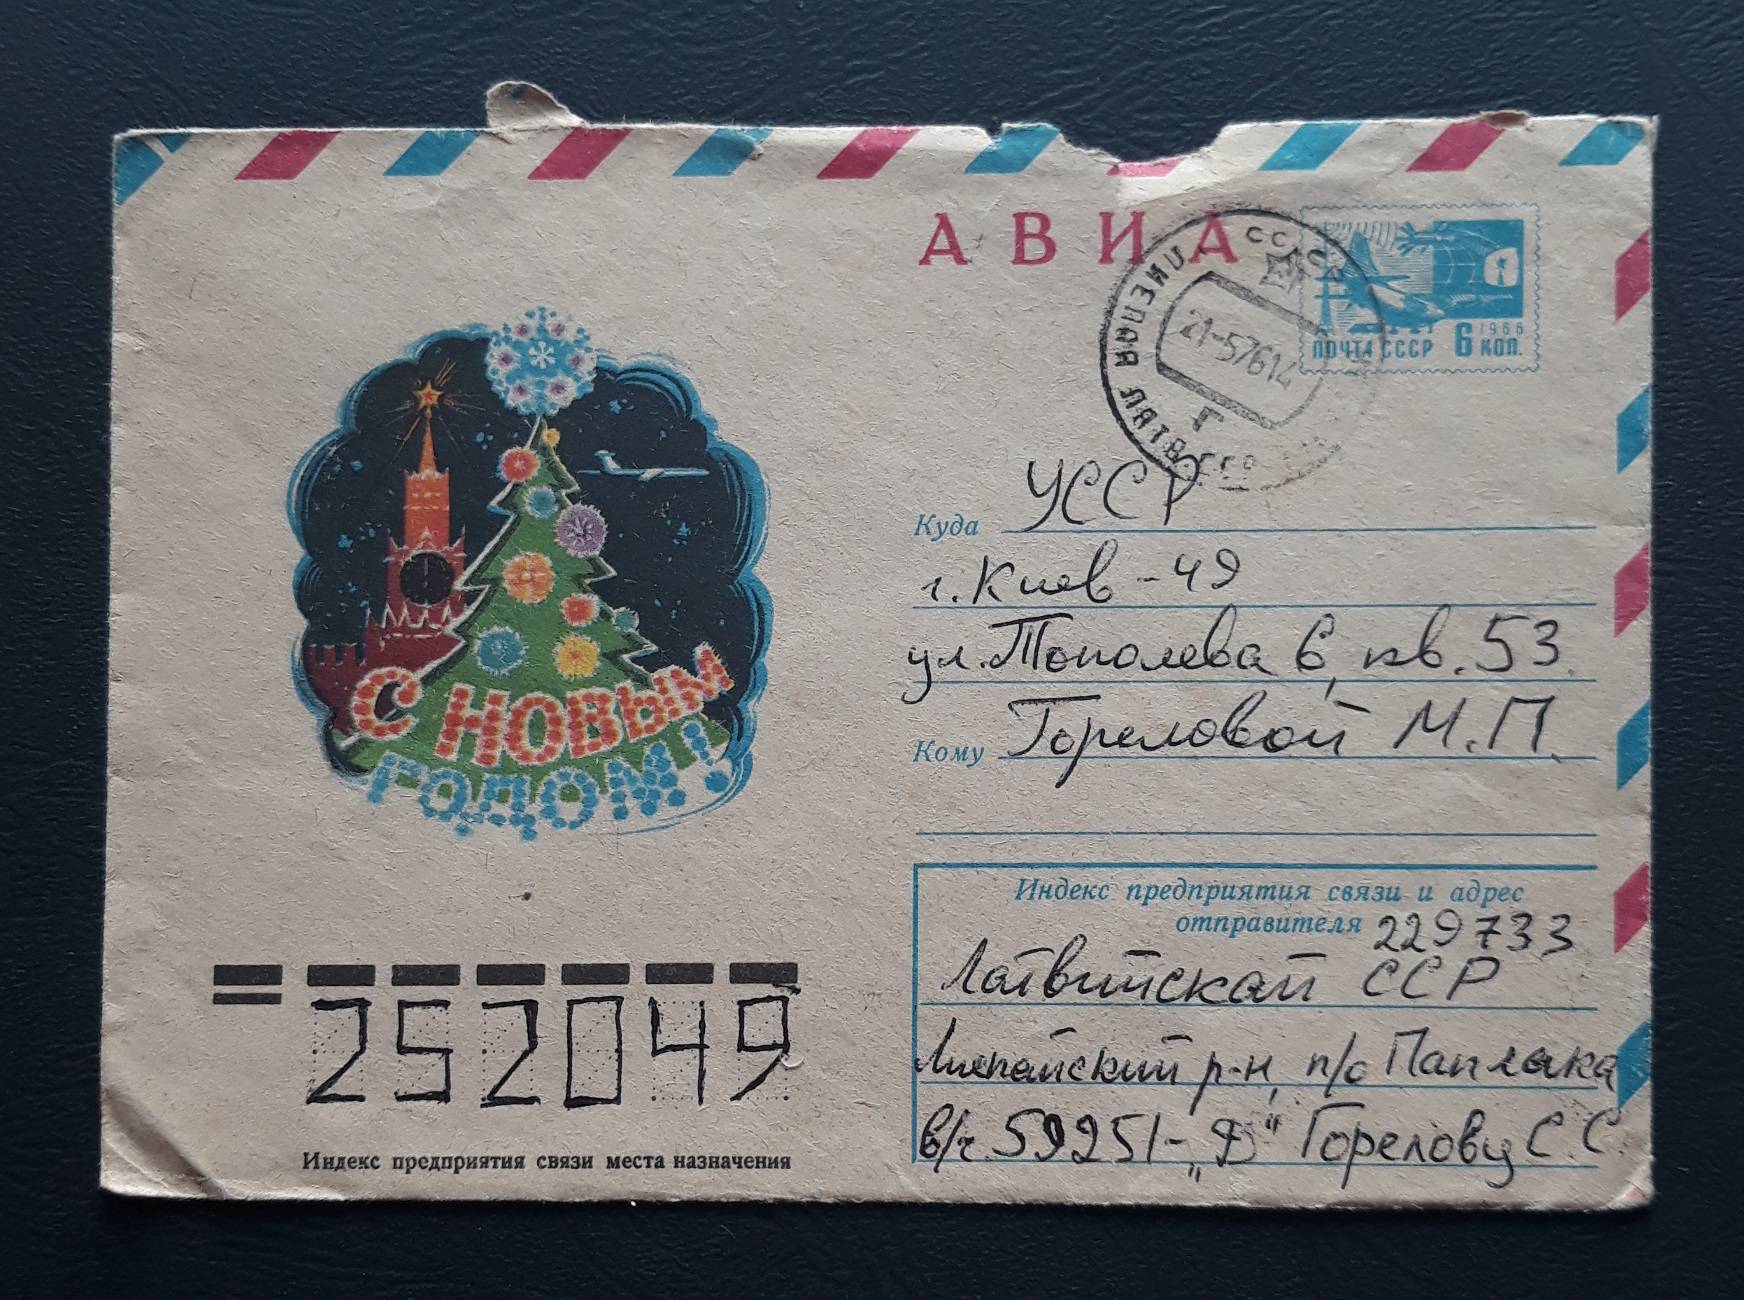 АВИА
СССР
ЛИЕПАЯ ЛАТВ ССР
21-57614
Г
1966
ПОЧТА СССР 6 КОП.
С НОВЫМ
ГОДОМ!
Куда УССР
г. Киев-49
ул. Тополева 6, кв. 53
Кому Гореловой М.П.
Индекс предприятия связи и адрес
отправителя 229733
Латвийская ССР
Лиепайский р-н, п/о Паплака
в/ч 59251-„Д" Горелову С.С.
252049
Индекс предприятия связи места назначения